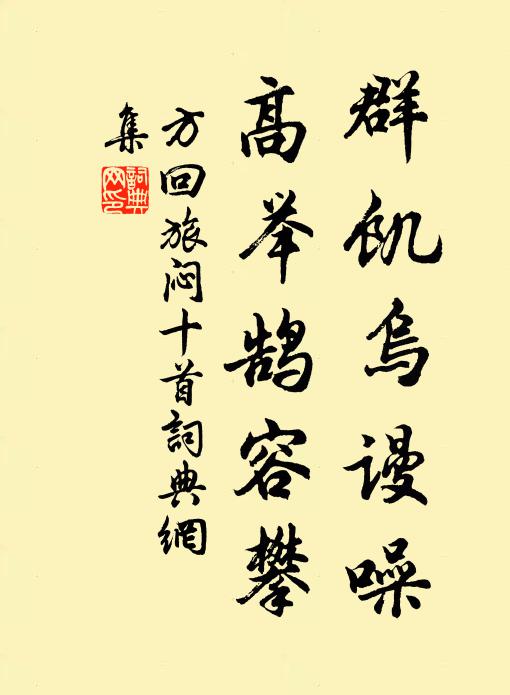 群飢烏謾噪
高举鹄容攀
方回旅闷十首詞典網
集
詞典网印